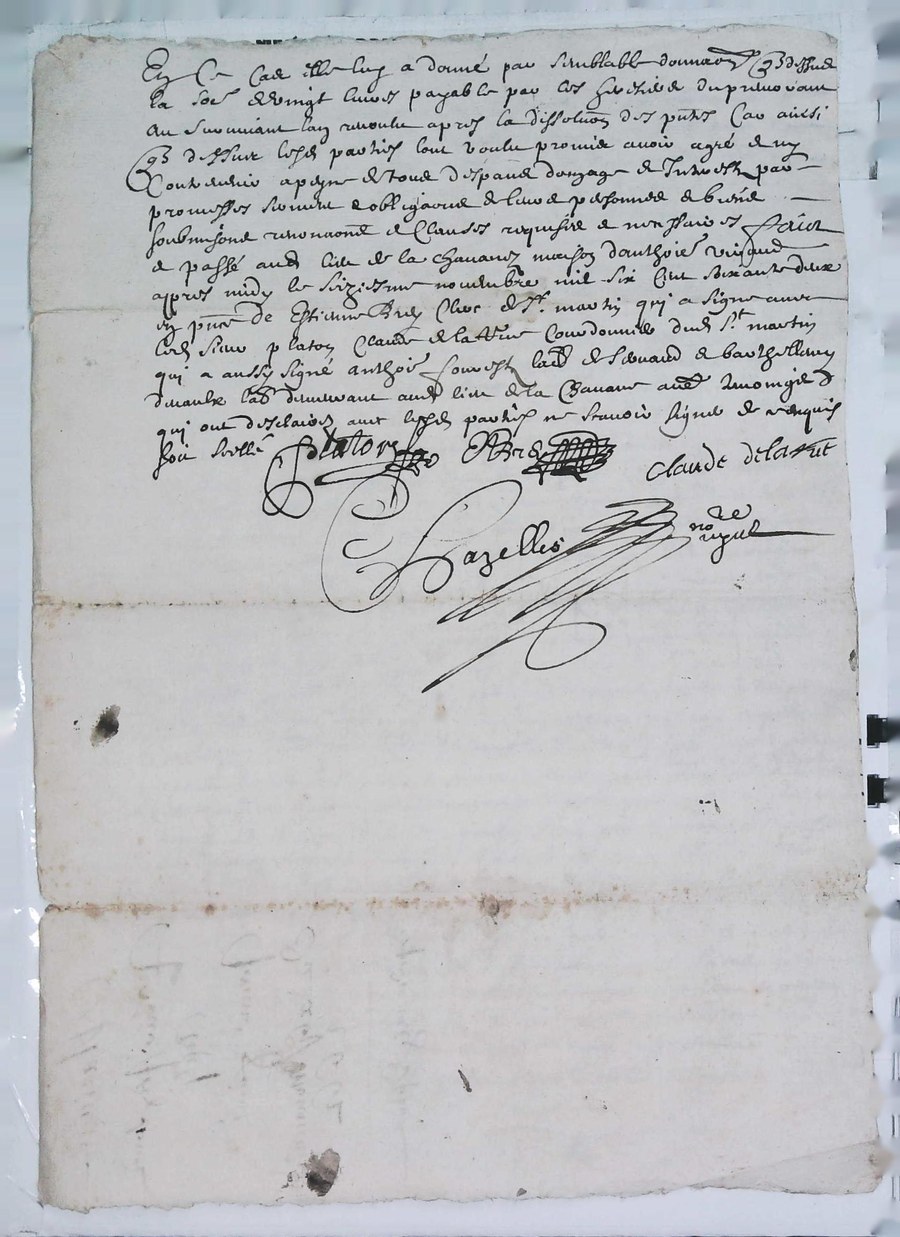 En ce cas elle luy a donné par semblable donnaõn Cõe dessus
la soẽ de vingt livres payable par les heritiers du premourant
au survivant l'an revoulu apres la dissoluõn des pñtes Car ainsi
lesd parties l'ont voulu promis avoir agré et ny
Contrevenir a peyne de tous despans domage et Interestz par
promesses serment obligaõns de leurs personnes et biens
soubmissions renonaõns et Clauses requises et necessaires faict
et passé aud lieu de la Chavanes maison d'anthoine
apres midy le seziesme novembre mil six Cent soixante deux
en pñce de Estienne Brey Clerc de St. martin qui a signe avec
led sieur platon Claude delaRue Courdonnier dud St martin
qui a aussy signé anthoine et barthellemy
demeurant aud lieu de la Chavane
qui ont desclairé avec lesd parties ne scavoir signer de ce enquis
soit scellé
Platon EBrey Claude delarue
Chazelles nore royal